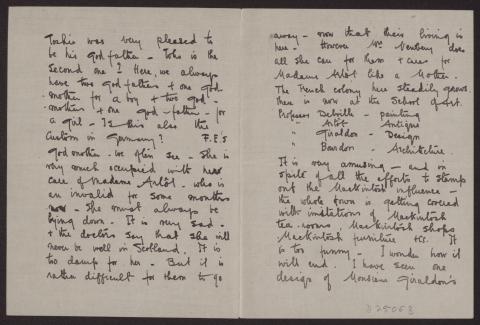 Toshie was very pleased to
be his godfather – Tohs is the
second one! Here, we always
have two godfathers + one god-
mother for a boy + two god-
mothers + one godfather – for
a girl – Is this also the
custom in Germany? F.E.S
godmother – we often see – she is
very much occupied with her
care of Madame Artôt – who is
an invalid for some months
now – She must always be
lying down – It is very sad –
+ the doctors say that she will
never be well in Scotland. It is
too damp for her – But it is
rather difficult for them to go
away – now that their living is
here – However Mrs Newbery does
all she can for them + cares for
Madame Artôt like a Mother.
The French colony here steadily grows.
there is now at the School of art.
Professor Delville – painting
" Artôt – Antique
" Giraldon – Design
" Bourdon – Architecture.
It is very amusing – and in
spite of all the efforts to stamp
out the Mackintosh influence –
the whole town is getting covered
with imitations of Mackintosh
tea-rooms, Mackintosh shops
Mackintosh furniture &c. It
is too funny – I wonder how it
will end. I have seen one
design of Monsieur Giraldon's